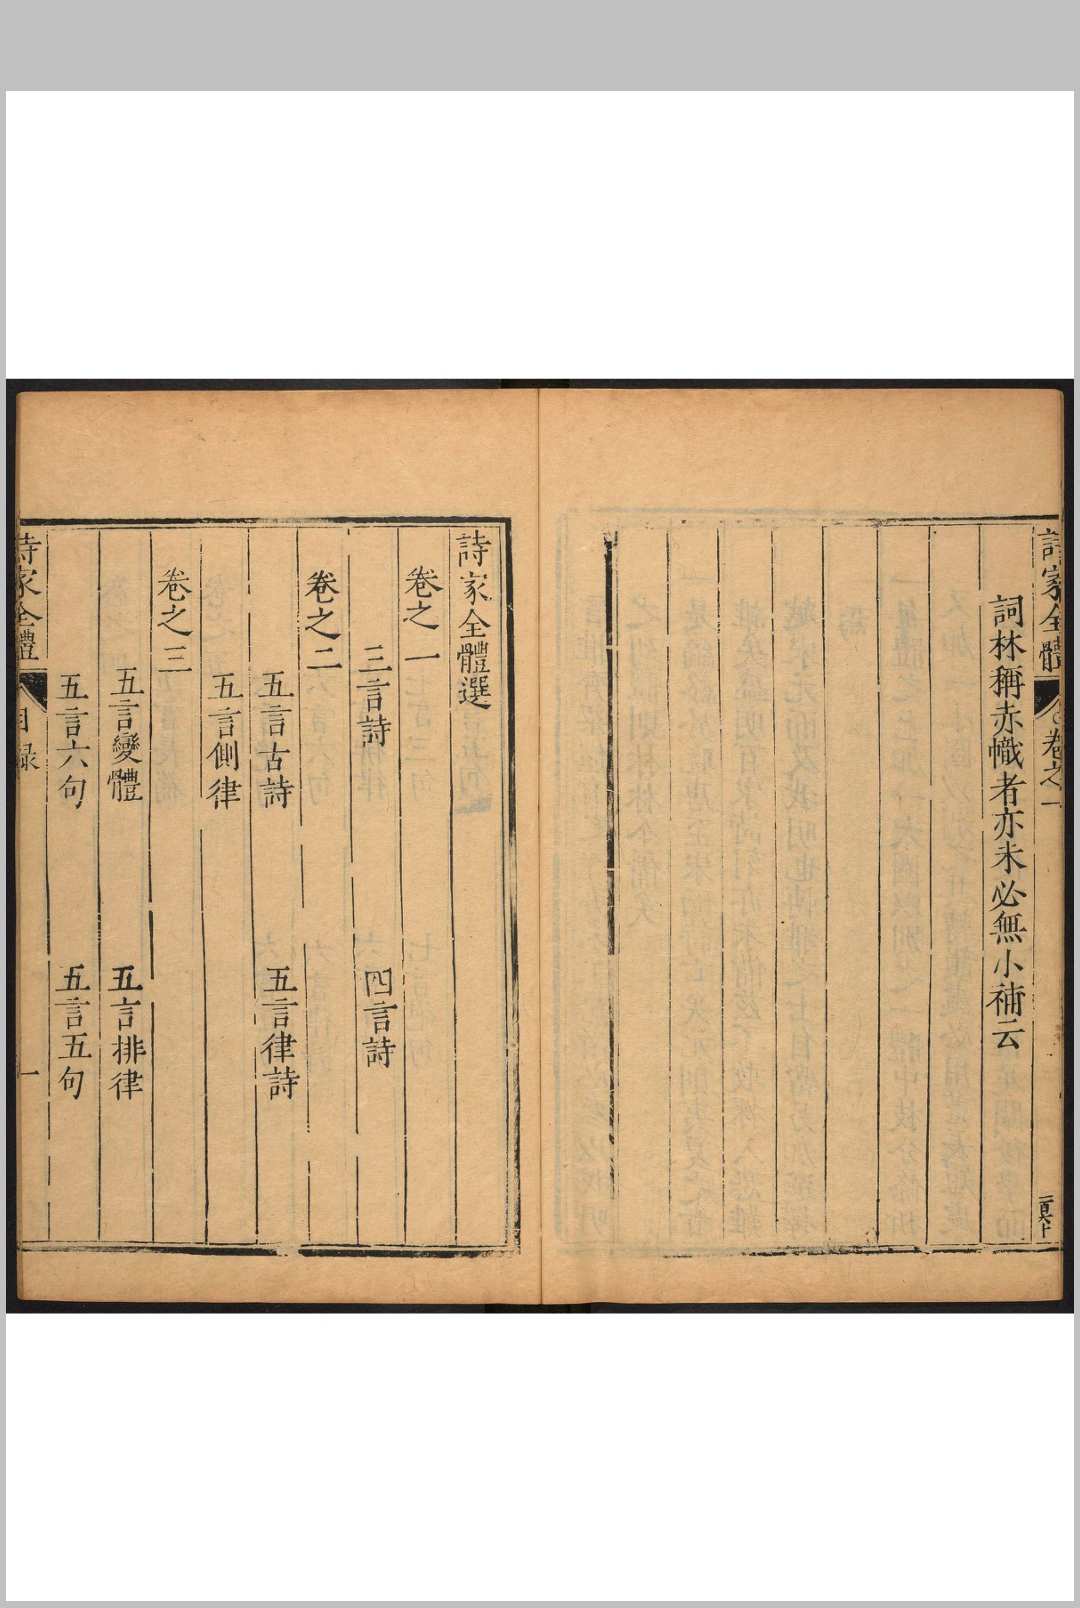 詩家全體
卷之一
詞林稱赤幟者亦未必無小補云
詩家全體選
卷之一
三言詩 四言詩
卷之二
五言古詩 五言律詩
五言側律
卷之三
五言變體 五言排律
五言六句 五言五句
詩家全體
目録
一